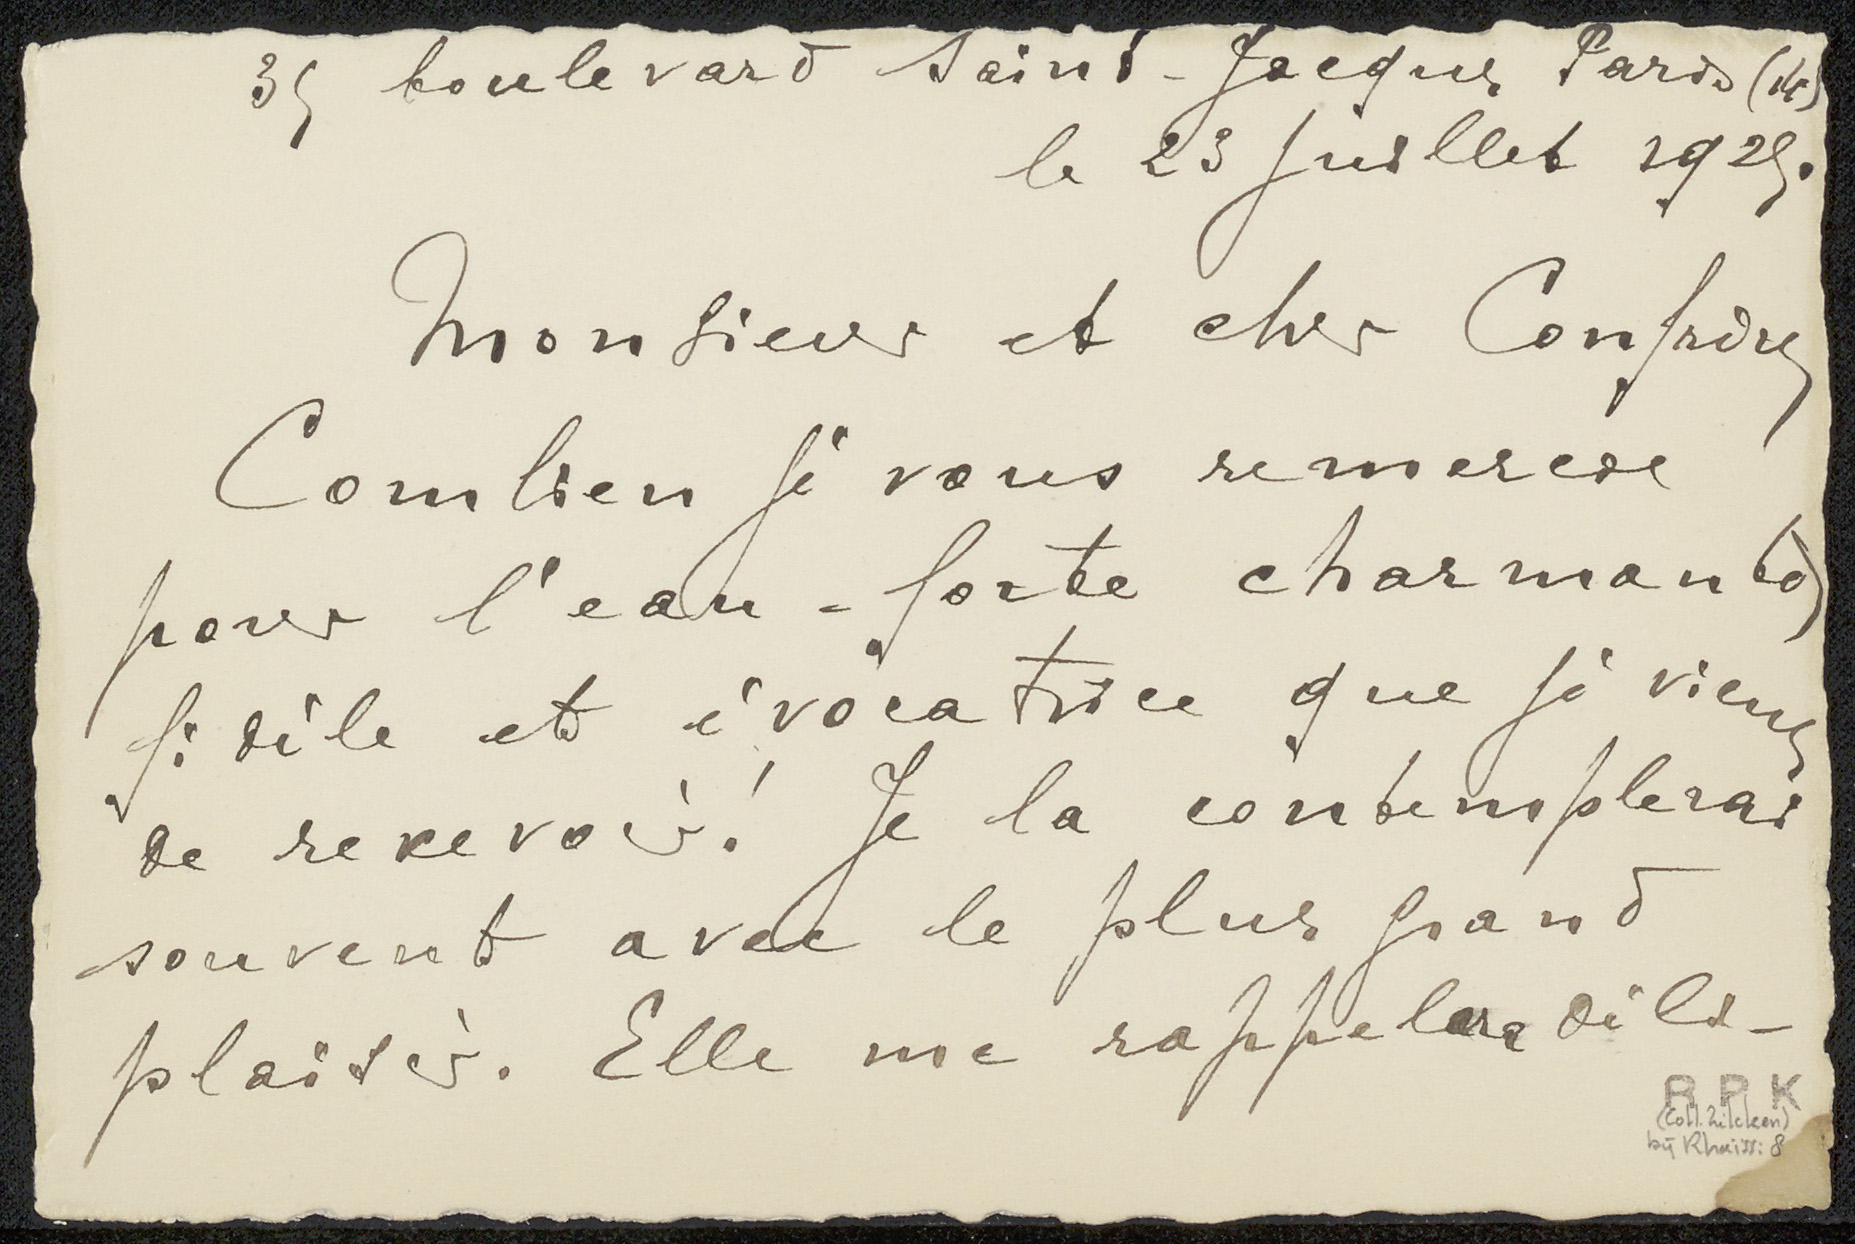 35 boulevard Saint-Jacques Paris (14)
le 23 juillet 1925.
Monsieur et cher Confrère
Combien je vous remercie
pour l'eau-forte charmante,
fidèle et évocatrice que je viens
de recevoir! Je la contemplerai
souvent avec le plus grand
plaisir. Elle me rappelera déli-
R P K
(Coll. Zilcken)
bij Rhaiss: 8